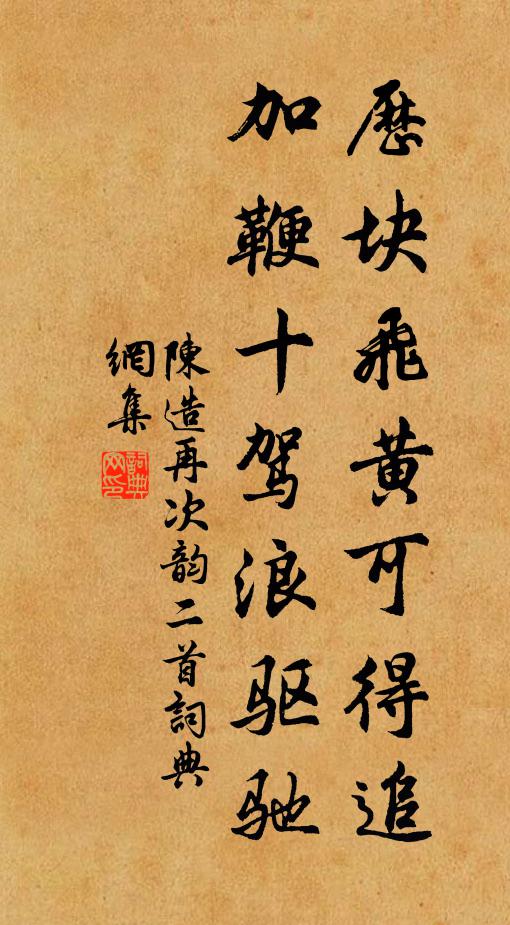 歷块飛黄可得追
加鞭十駕浪驱驰
陳造再次韵二首詞典
網集
詞典
网印